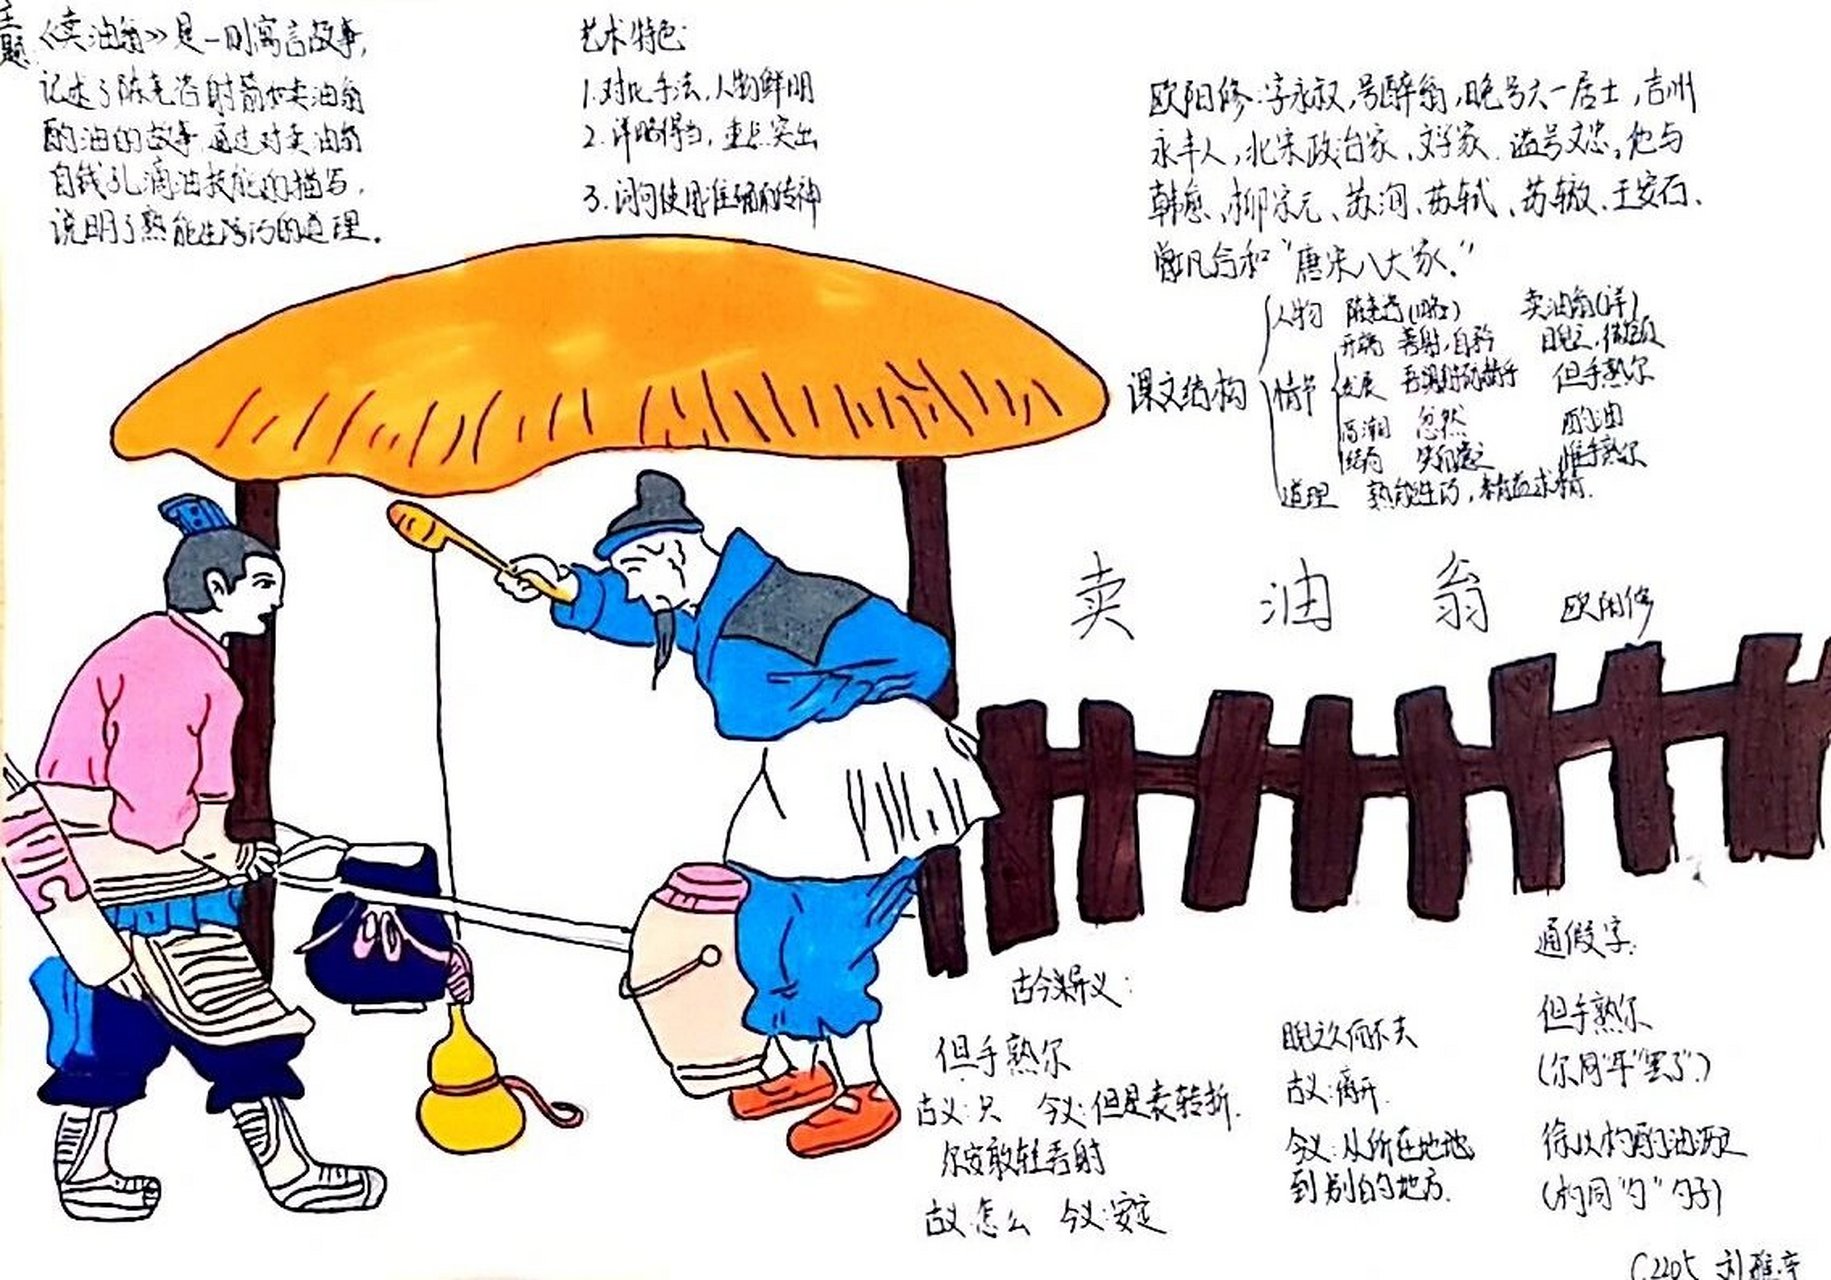 主题
《卖油翁》是一则寓言故事,
记述了陈尧咨射箭和卖油翁
酌油的故事,通过对卖油翁
自钱孔滴油技能的描写,
说明了熟能生巧的道理。
艺术特色:
1.对比手法,人物鲜明
2.详略得当,重点突出
3.词句使用准确而传神
欧阳修:字永叔,号醉翁,晚号六一居士,吉州
永丰人,北宋政治家、文学家.谥号文忠,他与
韩愈、柳宗元、苏洵、苏轼、苏辙、王安石、
曾巩合称“唐宋八大家.”
课文结构
人物 陈尧咨(略) 卖油翁(详)
情节
开端 善射,自矜 睨之,微颔
发展 吾射不亦精乎 但手熟尔
高潮 忿然 酌油
结局 笑而遣之 惟手熟尔
道理 熟能生巧,精益求精.
卖油翁 欧阳修
古今异义:
但手熟尔
古义:只 今义:但是表转折.
尔安敢轻吾射
古义:怎么 今义:安定
睨之久而不去
古义:离开.
今义:从所在地
到别的地方.
通假字:
但手熟尔
(尔同“耳”“罢了”)
徐以杓酌油沥之
(杓同“勺”勺子)
C2205 刘